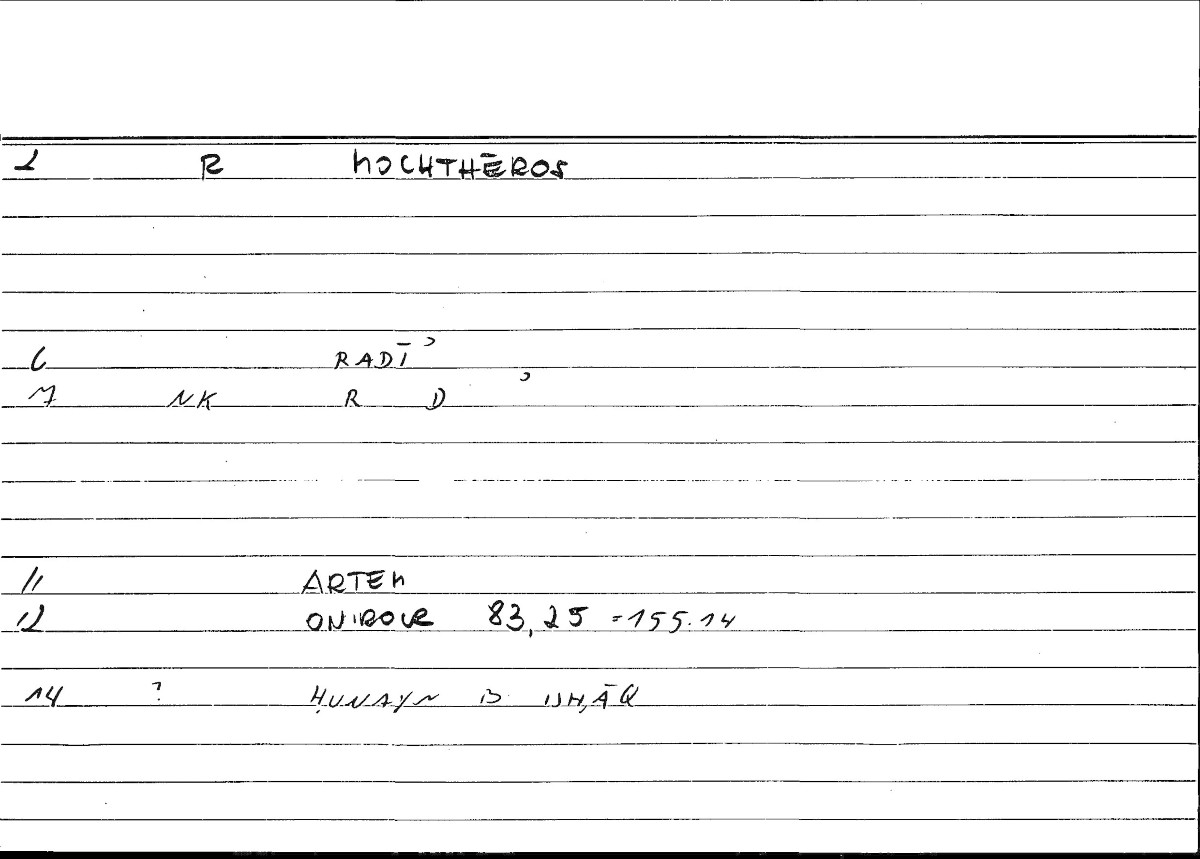 2 R MOCHTHĒROS
6 RADĪʾ
7 NK R D ʾ
11 ARTEM
12 ONIROCR 83,25 =155.14
14 ? ḤUNAYN B ISḤĀQ